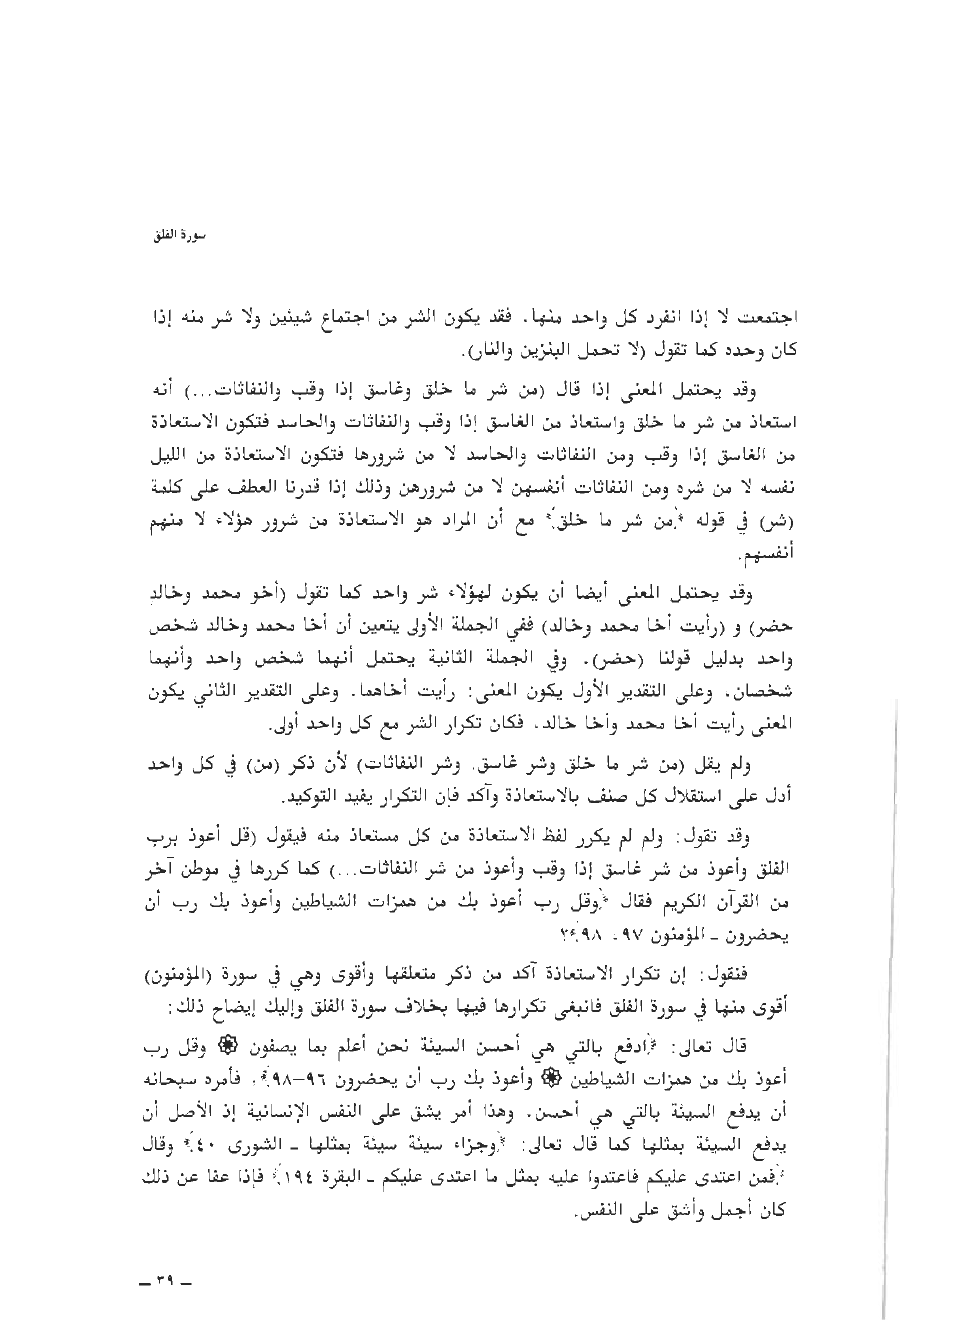 سورة الفلق
اجتمعت لا إذا انفرد كل واحد منها. فقد يكون الشر من اجتماع شيئين ولا شر منه إذا
كان وحده كما تقول (لا تحمل البنزين والنار).
وقد يحتمل المعنى إذا قال (من شر ما خلق وغاسق إذا وقب والنفاثات...) أنه
استعاذ من شر ما خلق واستعاذ من الغاسق إذا وقب والنفاثات والحاسد فتكون الاستعاذة
من الغاسق إذا وقب ومن النفاثات والحاسد لا من شرورها فتكون الاستعاذة من الليل
نفسه لا من شره ومن النفاثات أنفسهن لا من شرورهن وذلك إذا قدرنا العطف على كلمة
(شر) في قوله ﴿من شر ما خلق﴾ مع أن المراد هو الاستعاذة من شرور هؤلاء لا منهم
أنفسهم.
وقد يحتمل المعنى أيضا أن يكون لهؤلاء شر واحد كما تقول (أخو محمد وخالدٍ
حضر) و (رأيت أخا محمد وخالد) ففي الجملة الأولى يتعين أن أخا محمد وخالد شخص
واحد بدليل قولنا (حضر). وفي الجملة الثانية يحتمل أنهما شخص واحد وأنهما
شخصان. وعلى التقدير الأول يكون المعنى: رأيت أخاهما. وعلى التقدير الثاني يكون
المعنى رأيت أخا محمد وأخا خالد. فكان تكرار الشر مع كل واحد أولى.
ولم يقل (من شر ما خلق وشر غاسق. وشر النفاثات) لأن ذكر (من) في كل واحد
أدل على استقلال كل صنف بالاستعاذة وآكد فإن التكرار يفيد التوكيد.
وقد تقول: ولم لم يكرر لفظ الاستعاذة من كل مستعاذ منه فيقول (قل أعوذ برب
الفلق وأعوذ من شر غاسق إذا وقب وأعوذ من شر النفاثات...) كما كررها في موطن آخر
من القرآن الكريم فقال ﴿وقل رب أعوذ بك من همزات الشياطين وأعوذ بك رب أن
يحضرون ـ المؤمنون ٩٧. ٩٨﴾؟
فنقول: إن تكرار الاستعاذة آكد من ذكر متعلقها وأقوى وهي في سورة (المؤمنون)
أقوى منها في سورة الفلق فانبغى تكرارها فيها بخلاف سورة الفلق وإليك إيضاح ذلك:
قال تعالى: ﴿ادفع بالتي هي أحسن السيئة نحن أعلم بما يصفون ۞ وقل رب
أعوذ بك من همزات الشياطين ۞ وأعوذ بك رب أن يحضرون ٩٦–٩٨﴾. فأمره سبحانه
أن يدفع السيئة بالتي هي أحسن. وهذا أمر يشق على النفس الإنسانية إذ الأصل أن
يدفع السيئة بمثلها كما قال تعالى: ﴿وجزاء سيئة سيئة بمثلها ـ الشورى ٤٠﴾ وقال
﴿فمن اعتدى عليكم فاعتدوا عليه بمثل ما اعتدى عليكم ـ البقرة ١٩٤﴾ فإذا عفا عن ذلك
كان أجمل وأشق على النفس.
ـ ٣٩ ـ